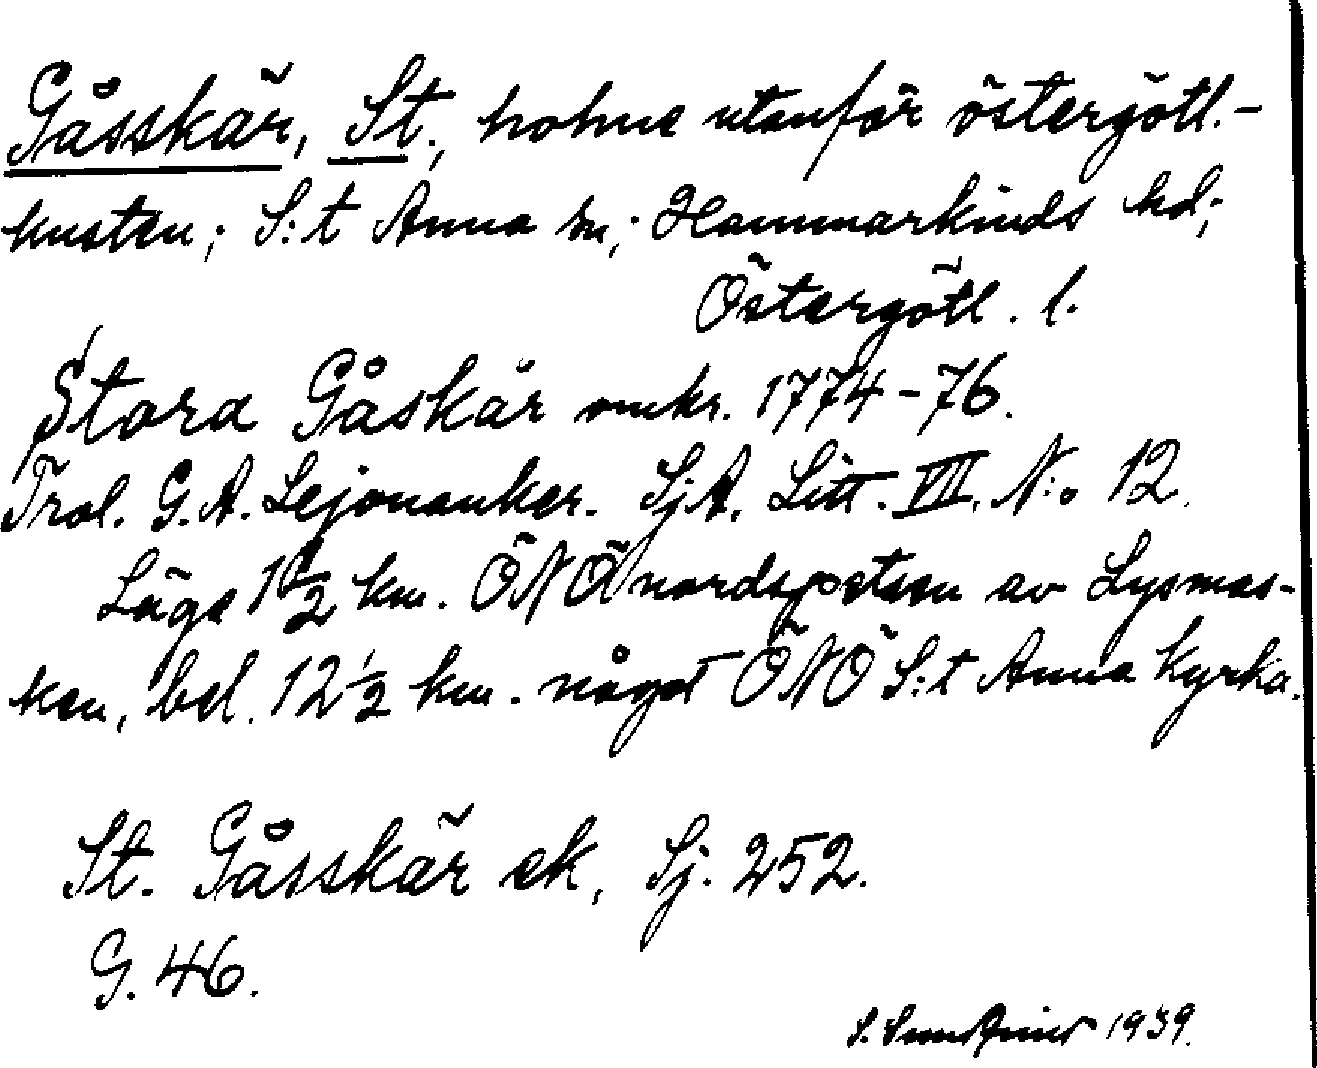 Gåsskär, St., holme utanför östergötl.-
kusten; S:t Anna sn; Hammarkinds hd;
Östergötl. l.
Stora Gåskär omkr. 1774-76.
Trol. G.A. Lejonanker. SjA. Litt. VII. N:o 12.
Läge 1 1/2 km. ÖNÖ nordspetsen av Lysmas-
ken, bel. 12 1/2 km. något ÖNÖ S:t Anna kyrka.
St. Gåsskär ek, Sj. 252.
G. 46.
S. 1939.